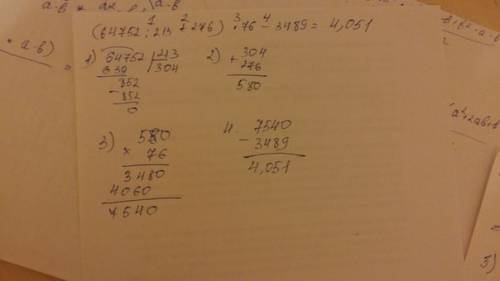 a·b
(64752 : 213 + 276) · 76 - 3489 = 4,051
1 2 3 4
· a·b)
=
1) 64752 | 213
639 | 304
852
- 852
0
2) + 304
276
580
3) 580
× 76
3480
4060
7540
4. 7540
- 3489
4,051
a²+2ab+
3)